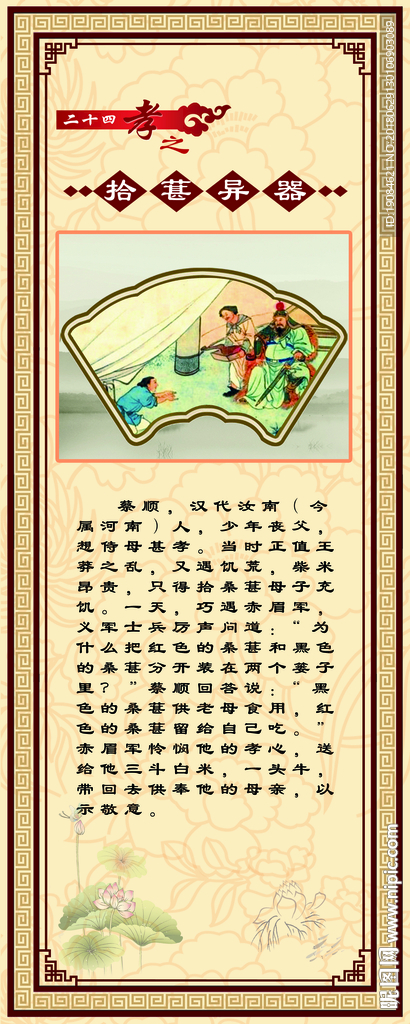 二十四孝之
拾葚异器
蔡顺，汉代汝南（今
属河南）人，少年丧父，
想侍母甚孝。当时正值王
莽之乱，又遇饥荒，柴米
昂贵，只得拾桑葚母子充
饥。一天，巧遇赤眉军，
义军士兵厉声问道：“为
什么把红色的桑葚和黑色
的桑葚分开装在两个篓子
里？”蔡顺回答说：“黑
色的桑葚供老母食用，红
色的桑葚留给自己吃。”
赤眉军怜悯他的孝心，送
给他三斗白米，一头牛，
带回去供奉他的母亲，以
示敬意。
昵图网 www.nipic.com